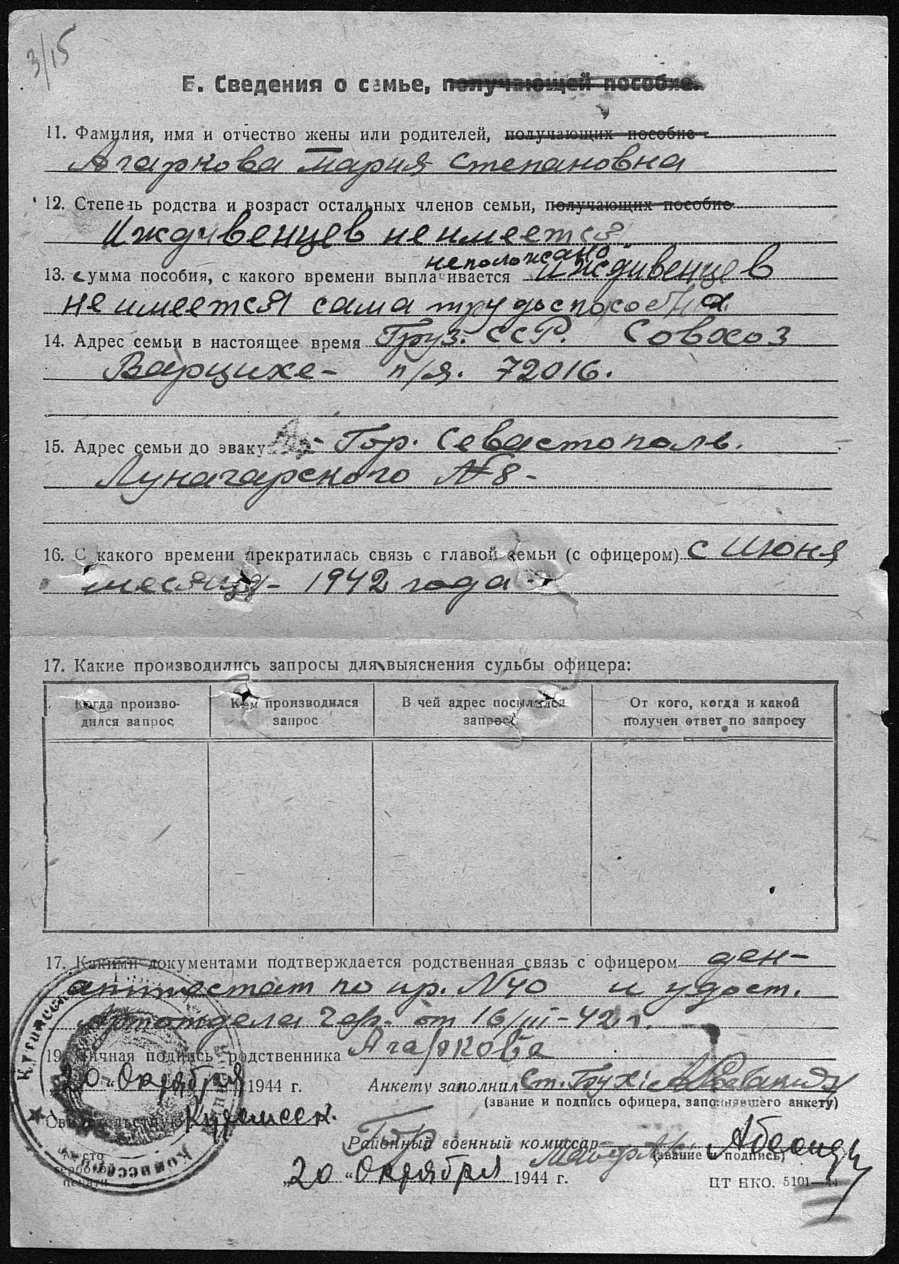 3/15
Б. Сведения о семье, получающей пособие.
11. Фамилия, имя и отчество жены или родителей, получающих пособие
Агаркова Мария Степановна
12. Степень родства и возраст остальных членов семьи, получающих пособие
Иждивенцев не имеется
неположано
13. Сумма пособия, с какого времени выплачивается Иждивенцев
не имеется сама трудоспособная
14. Адрес семьи в настоящее время Груз. ССР. Совхоз
Варцихе- п/я. 72016.
15. Адрес семьи до эваку Гор. Севастополь.
Луначарского № 8-
16. С какого времени прекратилась связь с главой семьи (с офицером) с Июня
месяца- 1942 года
17. Какие производились запросы для выяснения судьбы офицера:
Когда произво-
дился запрос
Кем производился
запрос
В чей адрес посылался
запрос
От кого, когда и какой
получен ответ по запросу
17. Какими документами подтверждается родственная связь с офицером ден-
аттестат по пр. №40 и удост.
Артотдела Чер. от 16/III-42 г.
19. Личная подпись родственника Агаркова
20 „ Октября 1944 г. Анкету заполнил Ст.
(звание и подпись офицера, заполнявшего анкету)
Свидетельствую
Гор
Районный военный комиссар Майор
(звание и подпись)
Место
гербовой
печати
„20 „ Октября 1944 г.
ЦТ НКО. 5101—44